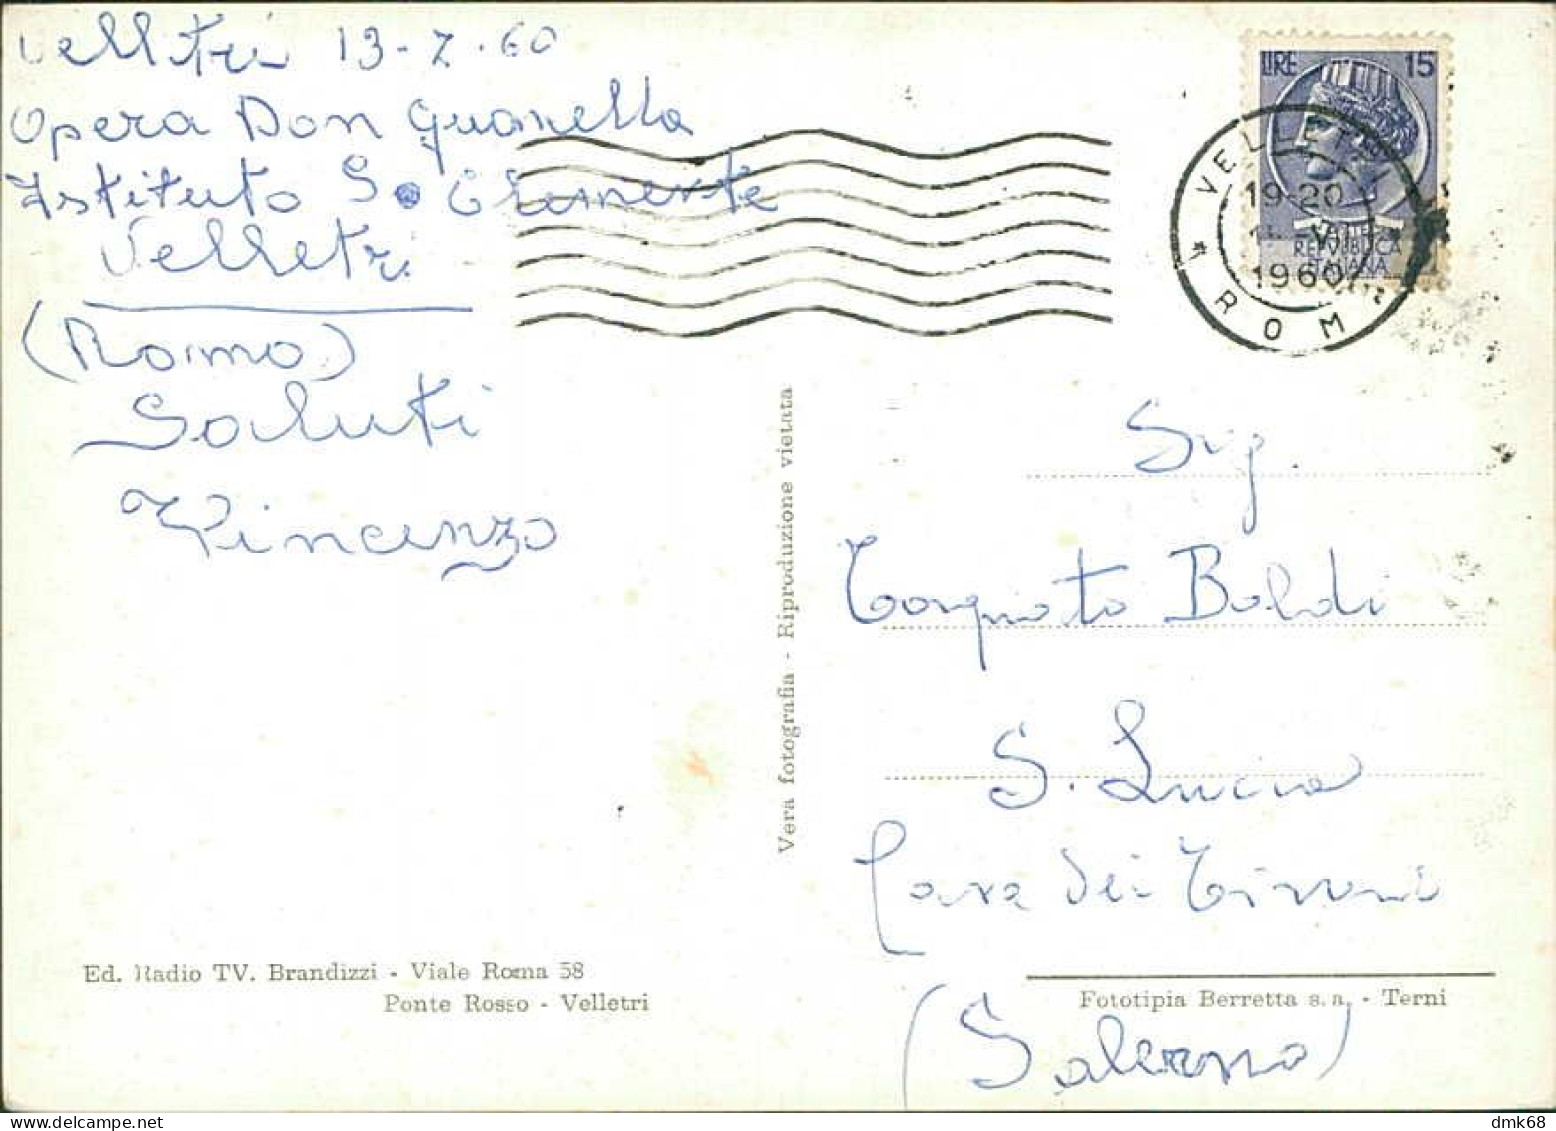 Velletri 13-7-60
Opera Don Guanella
Istituto S. Clemente
Velletri
(Roma)
Saluti
Vincenzo
Ed. Radio TV. Brandizzi - Viale Roma 58
Ponte Rosso - Velletri
Vera fotografia - Riproduzione vietata
LIRE 15
REPUBBLICA
ITALIANA
VELLETRI
19-20
1960
ROMA
Sig.
Torquato Baldi
S. Lucia
Cava dei Tirreni
(Salerno)
Fototipia Berretta s.a. - Terni
delcampe.net
dmk68